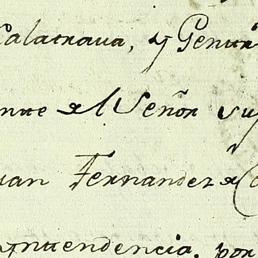 Calatrava, y Genera
del Señor Su
uan Fernandez de C
ntendencia, por